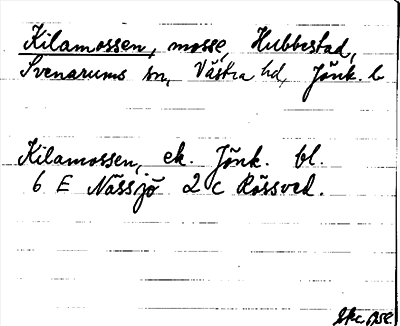 Kilamossen, mosse, Hubbestad,
Svenarums sn, Västra hd, Jönk. l.
Kilamossen, ek. Jönk. bl.
6 E Nässjö 2 c Rössved.